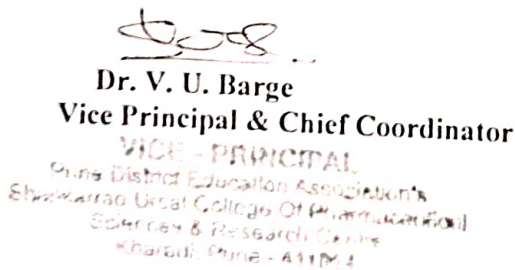 Dr. V. U. Barge
Vice Principal & Chief Coordinator
VICE - PRINCIPAL
Pune District Education Association's
Shankarrao Ursal College Of Pharmaceutical
Sciences & Research Centre
Kharadi, Pune -